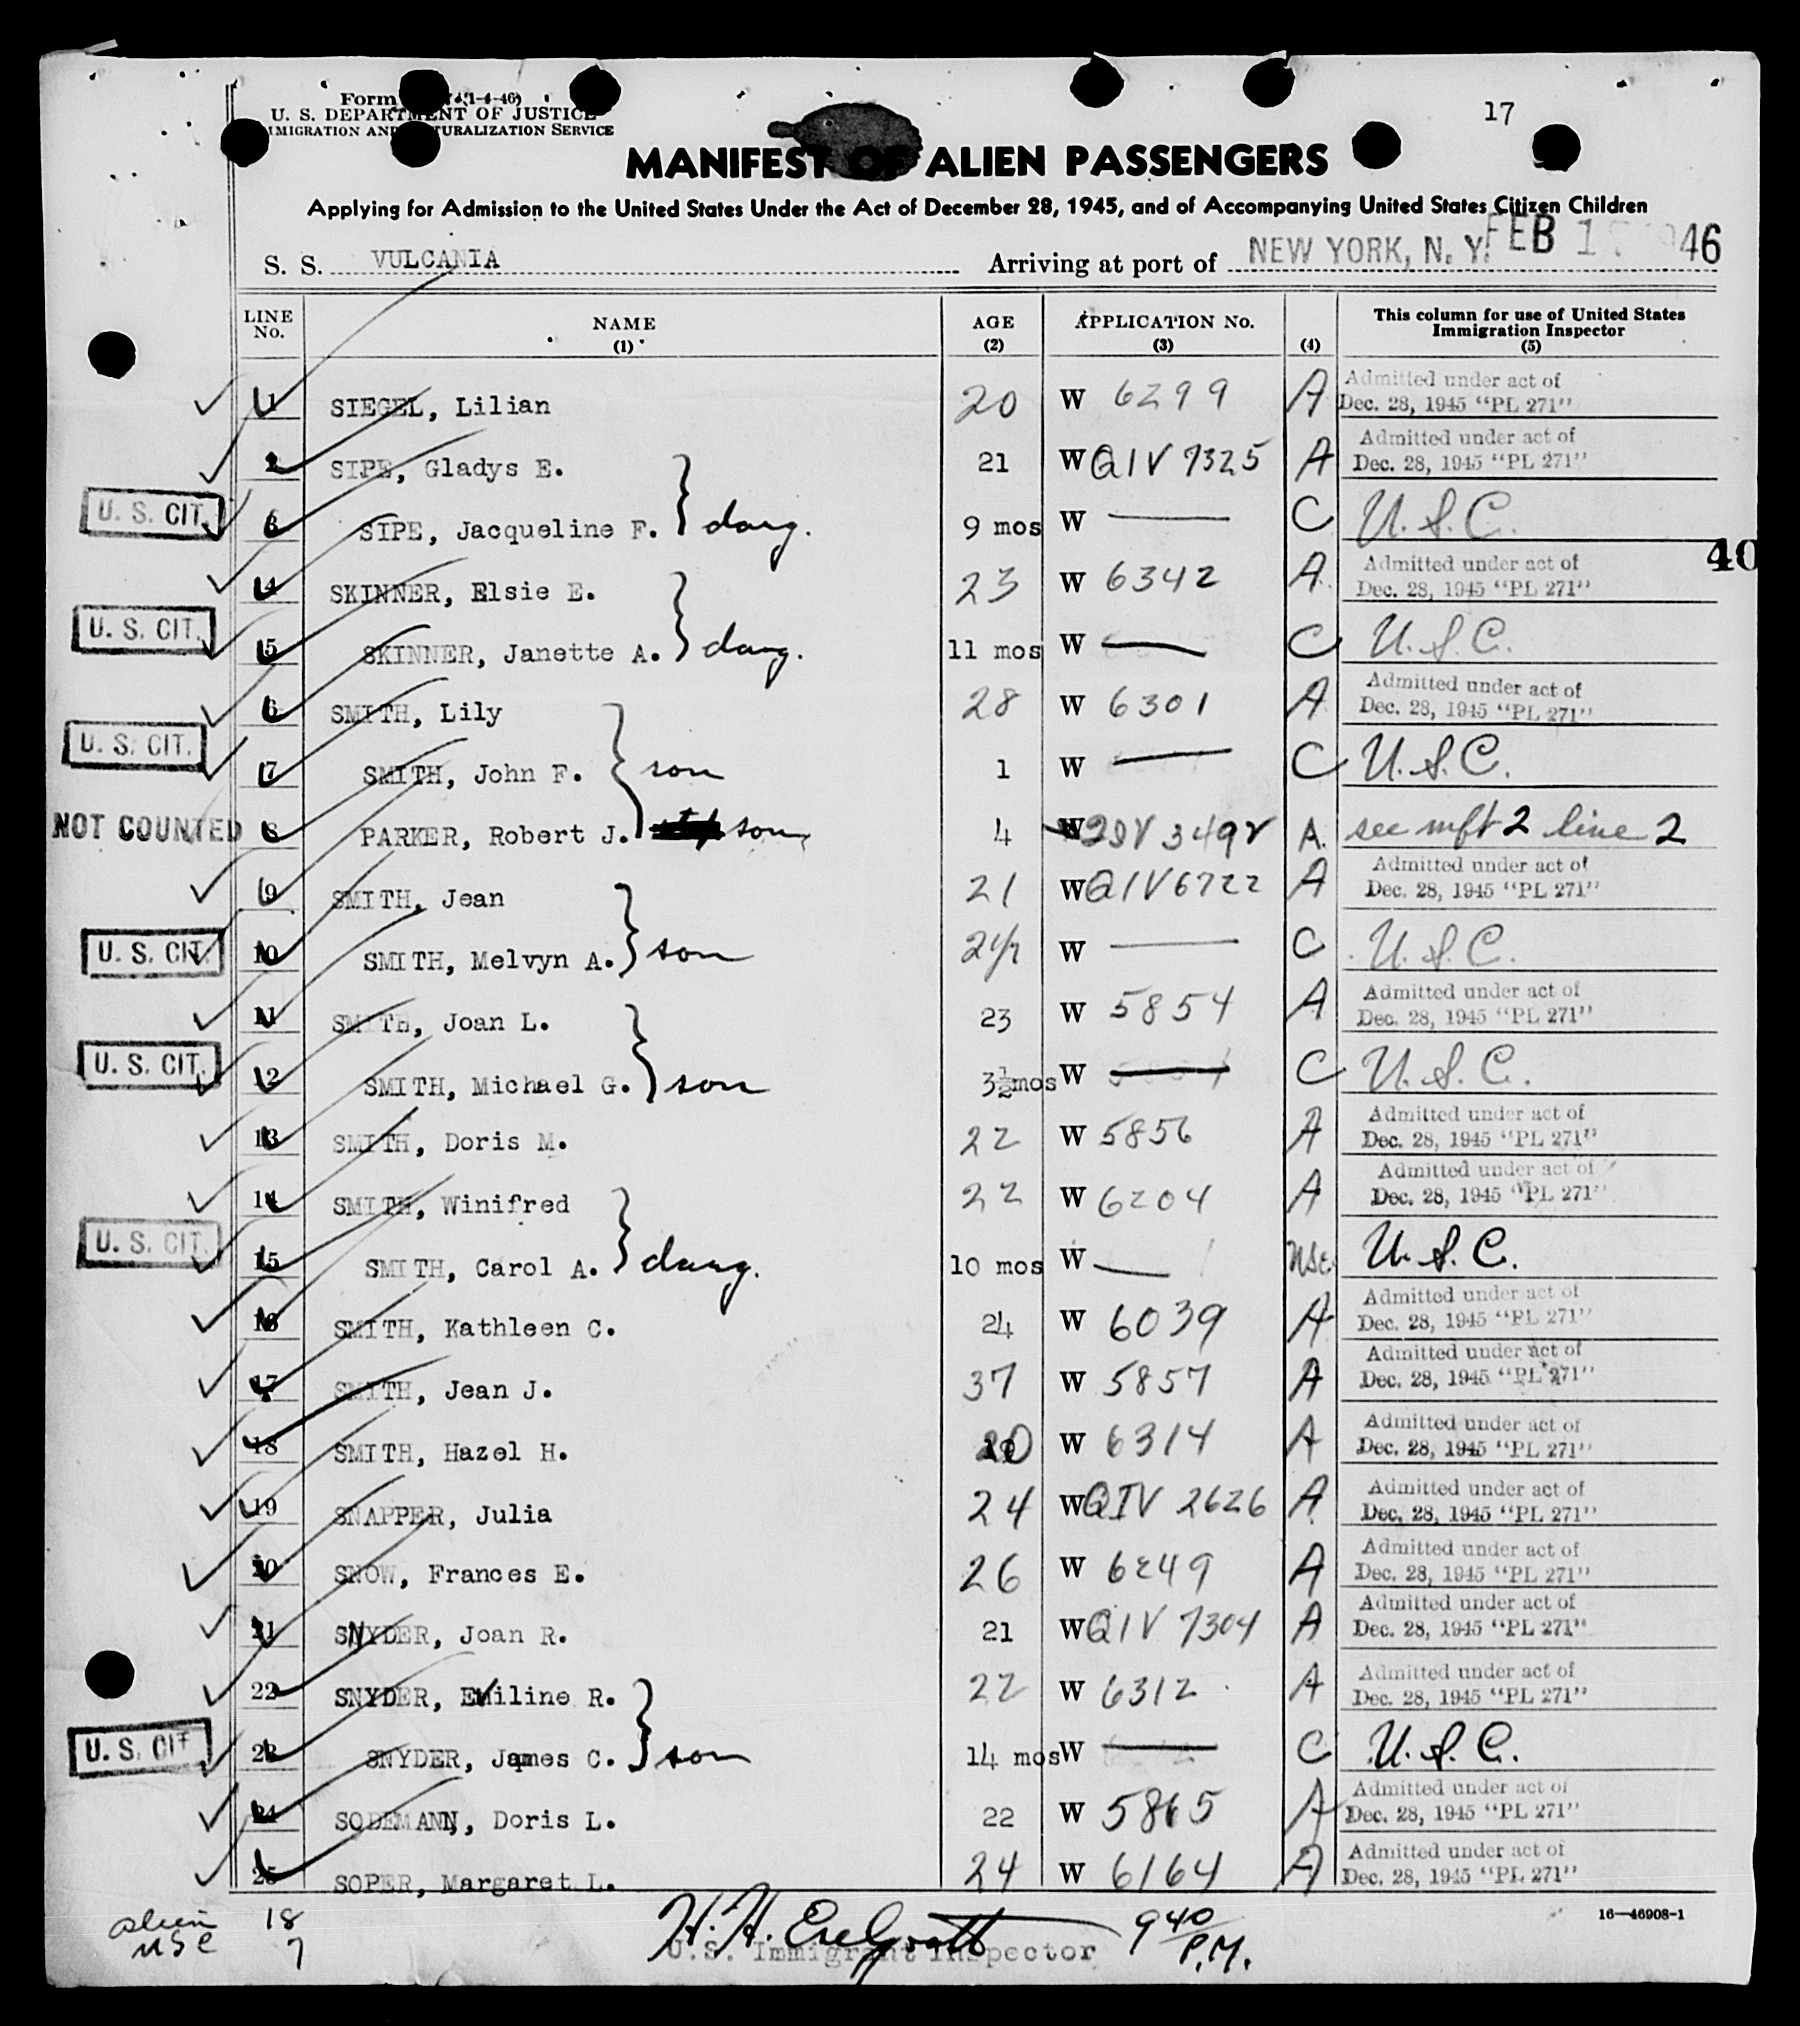 Form (1-4-46)
U. S. DEPARTMENT OF JUSTICE
IMIGRATION AND NATURALIZATION SERVICE
17
MANIFEST OF ALIEN PASSENGERS
Applying for Admission to the United States Under the Act of December 28, 1945, and of Accompanying United States Citizen Children
S. S. VULCANIA Arriving at port of NEW YORK, N. Y. FEB 1 1946
LINE No. NAME (1) AGE (2) APPLICATION No. (3) (4) This column for use of United States Immigration Inspector (5)
1 SIEGEL, Lilian 20 W 6299 A Admitted under act of Dec. 28, 1945 "PL 271"
2 SIPE, Gladys E. 21 W QIV 7325 A Admitted under act of Dec. 28, 1945 "PL 271"
U. S. CIT. 3 SIPE, Jacqueline F. } daug. 9 mos W — C U.S.C.
40
4 SKINNER, Elsie E. 23 W 6342 A Admitted under act of Dec. 28, 1945 "PL 271"
U. S. CIT. 5 SKINNER, Janette A. } daug. 11 mos W — C U.S.C.
6 SMITH, Lily 28 W 6301 A Admitted under act of Dec. 28, 1945 "PL 271"
U. S. CIT. 7 SMITH, John F. } son 1 W — C U.S.C.
NOT COUNTED 8 PARKER, Robert J. step son 4 W 2SV 3492 A. see mft 2 line 2
9 SMITH, Jean 21 W QIV 6722 A Admitted under act of Dec. 28, 1945 "PL 271"
U. S. CIT. 10 SMITH, Melvyn A. } son 2 1/2 W — C U.S.C.
11 SMITH, Joan L. 23 W 5854 A Admitted under act of Dec. 28, 1945 "PL 271"
U. S. CIT. 12 SMITH, Michael G. } son 3½mos W — C U.S.C.
13 SMITH, Doris M. 22 W 5856 A Admitted under act of Dec. 28, 1945 "PL 271"
14 SMITH, Winifred 22 W 6204 A Admitted under act of Dec. 28, 1945 "PL 271"
U. S. CIT. 15 SMITH, Carol A. } daug. 10 mos W — USC U.S.C.
16 SMITH, Kathleen C. 24 W 6039 A Admitted under act of Dec. 28, 1945 "PL 271"
17 SMITH, Jean J. 37 W 5857 A Admitted under act of Dec. 28, 1945 "PL 271"
18 SMITH, Hazel H. 20 W 6314 A Admitted under act of Dec. 28, 1945 "PL 271"
19 SNAPPER, Julia 24 W QIV 2626 A Admitted under act of Dec. 28, 1945 "PL 271"
20 SNOW, Frances E. 26 W 6249 A Admitted under act of Dec. 28, 1945 "PL 271"
21 SNYDER, Joan R. 21 W QIV 7304 A Admitted under act of Dec. 28, 1945 "PL 271"
22 SNYDER, Emiline R. 22 W 6312 A Admitted under act of Dec. 28, 1945 "PL 271"
U. S. CIT 23 SNYDER, James C. } son 14 mos W — C U.S.C.
24 SODEMANN, Doris L. 22 W 5865 A Admitted under act of Dec. 28, 1945 "PL 271"
25 SOPER, Margaret L. 24 W 6164 A Admitted under act of Dec. 28, 1945 "PL 271"
16—46908-1
alien 18
USC 7
9 40 P.M.
U.S. Immigrant Inspector